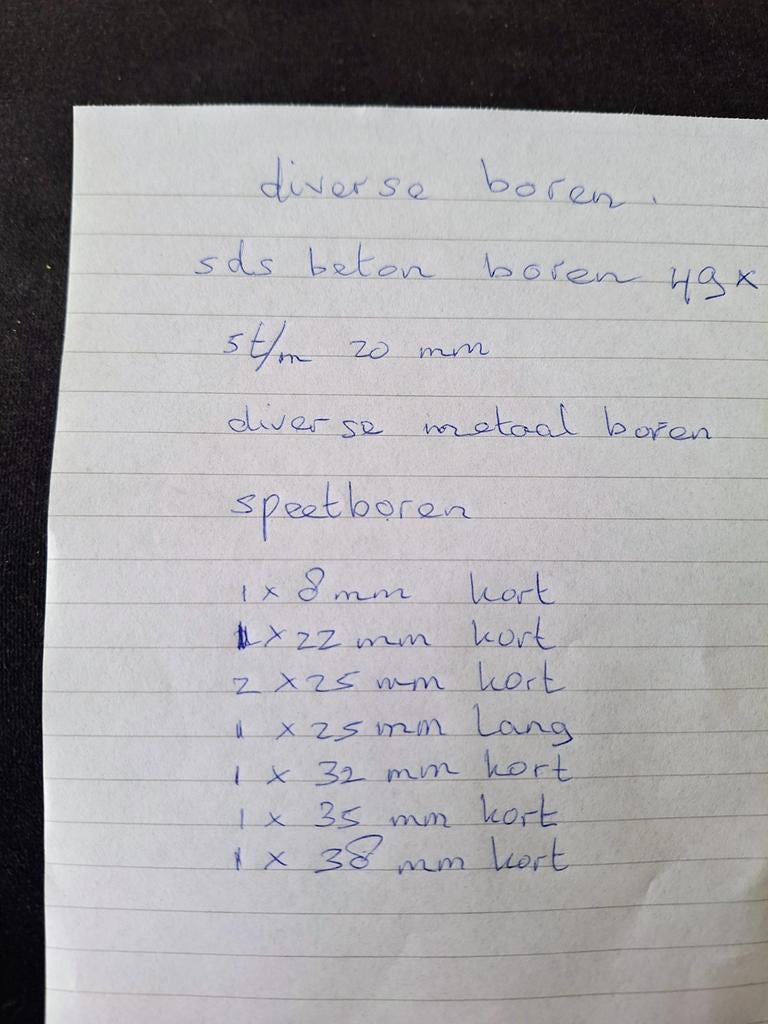 diverse boren.
sds beton boren 49x
5 t/m 20 mm
diverse metaal boren
speetboren
1 x 8 mm kort
1 x 22 mm kort
2 x 25 mm kort
1 x 25 mm Lang
1 x 32 mm kort
1 x 35 mm kort
1 x 38 mm kort